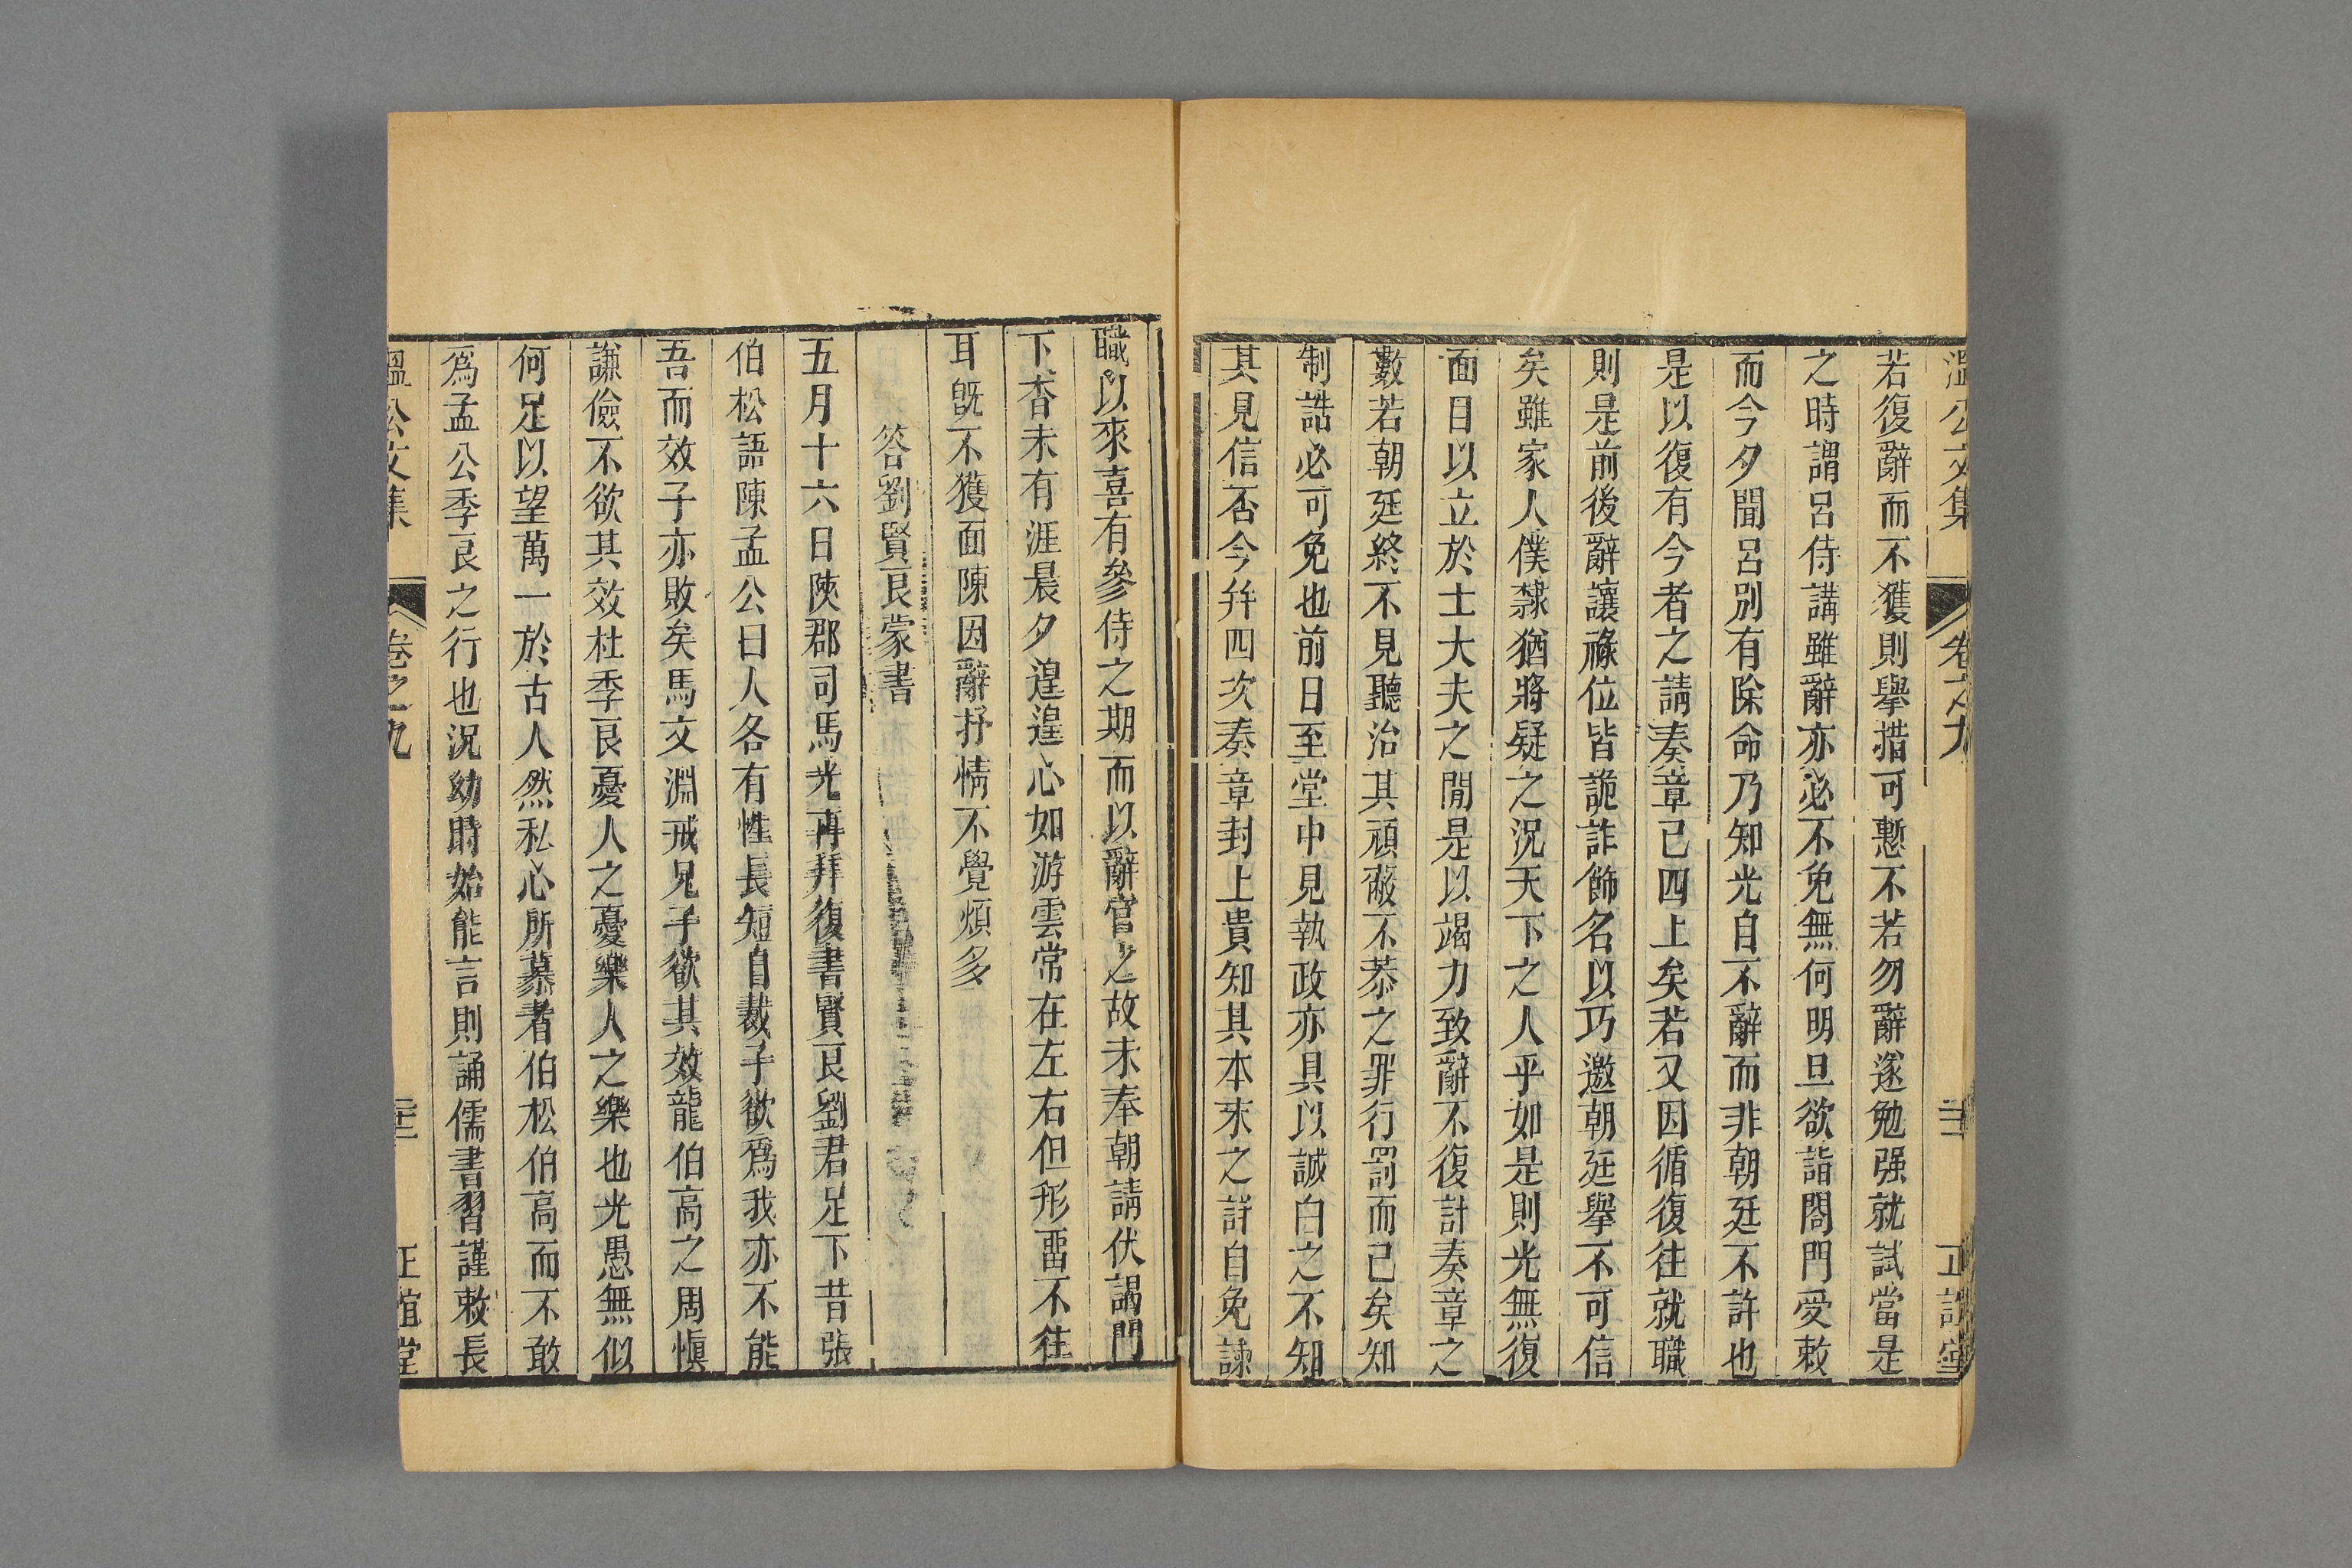 溫公文集 卷之九 正誼堂
若復辭而不獲則舉措可慙不若勿辭遂勉强就試當是
之時謂呂侍講雖辭亦必不免無何明旦欲詣閤門受敕
而今夕聞呂別有除命乃知光自不辭而非朝廷不許也
是以復有今者之請奏章已四上矣若又因循復往就職
則是前後辭讓祿位皆詭詐飾名以巧邀朝廷舉不可信
矣雖家人僕隸猶將疑之況天下之人乎如是則光無復
面目以立於士大夫之閒是以竭力致辭不復計奏章之
數若朝廷終不見聽治其頑蔽不恭之罪行罰而已矣知
制誥必可免也前日至堂中見執政亦具以誠白之不知
其見信否今幷四次奏章封上貴知其本末之詳自免諫
職以來喜有參侍之期而以辭官之故未奉朝請伏謁門
下杳未有涯晨夕遑遑心如游雲常在左右但形畱不往
耳旣不獲面陳因辭抒情不覺煩多
答劉賢良蒙書
五月十六日陜郡司馬光再拜復書賢良劉君足下昔張
伯松語陳孟公曰人各有性長短自裁子欲爲我亦不能
吾而效子亦敗矣馬文淵戒兄子欲其效龍伯高之周愼
謙儉不欲其效杜季良憂人之憂樂人之樂也光愚無似
何足以望萬一於古人然私心所慕者伯松伯高而不敢
爲孟公季良之行也況幼時始能言則誦儒書習謹敕長
溫公文集 卷之九 正誼堂